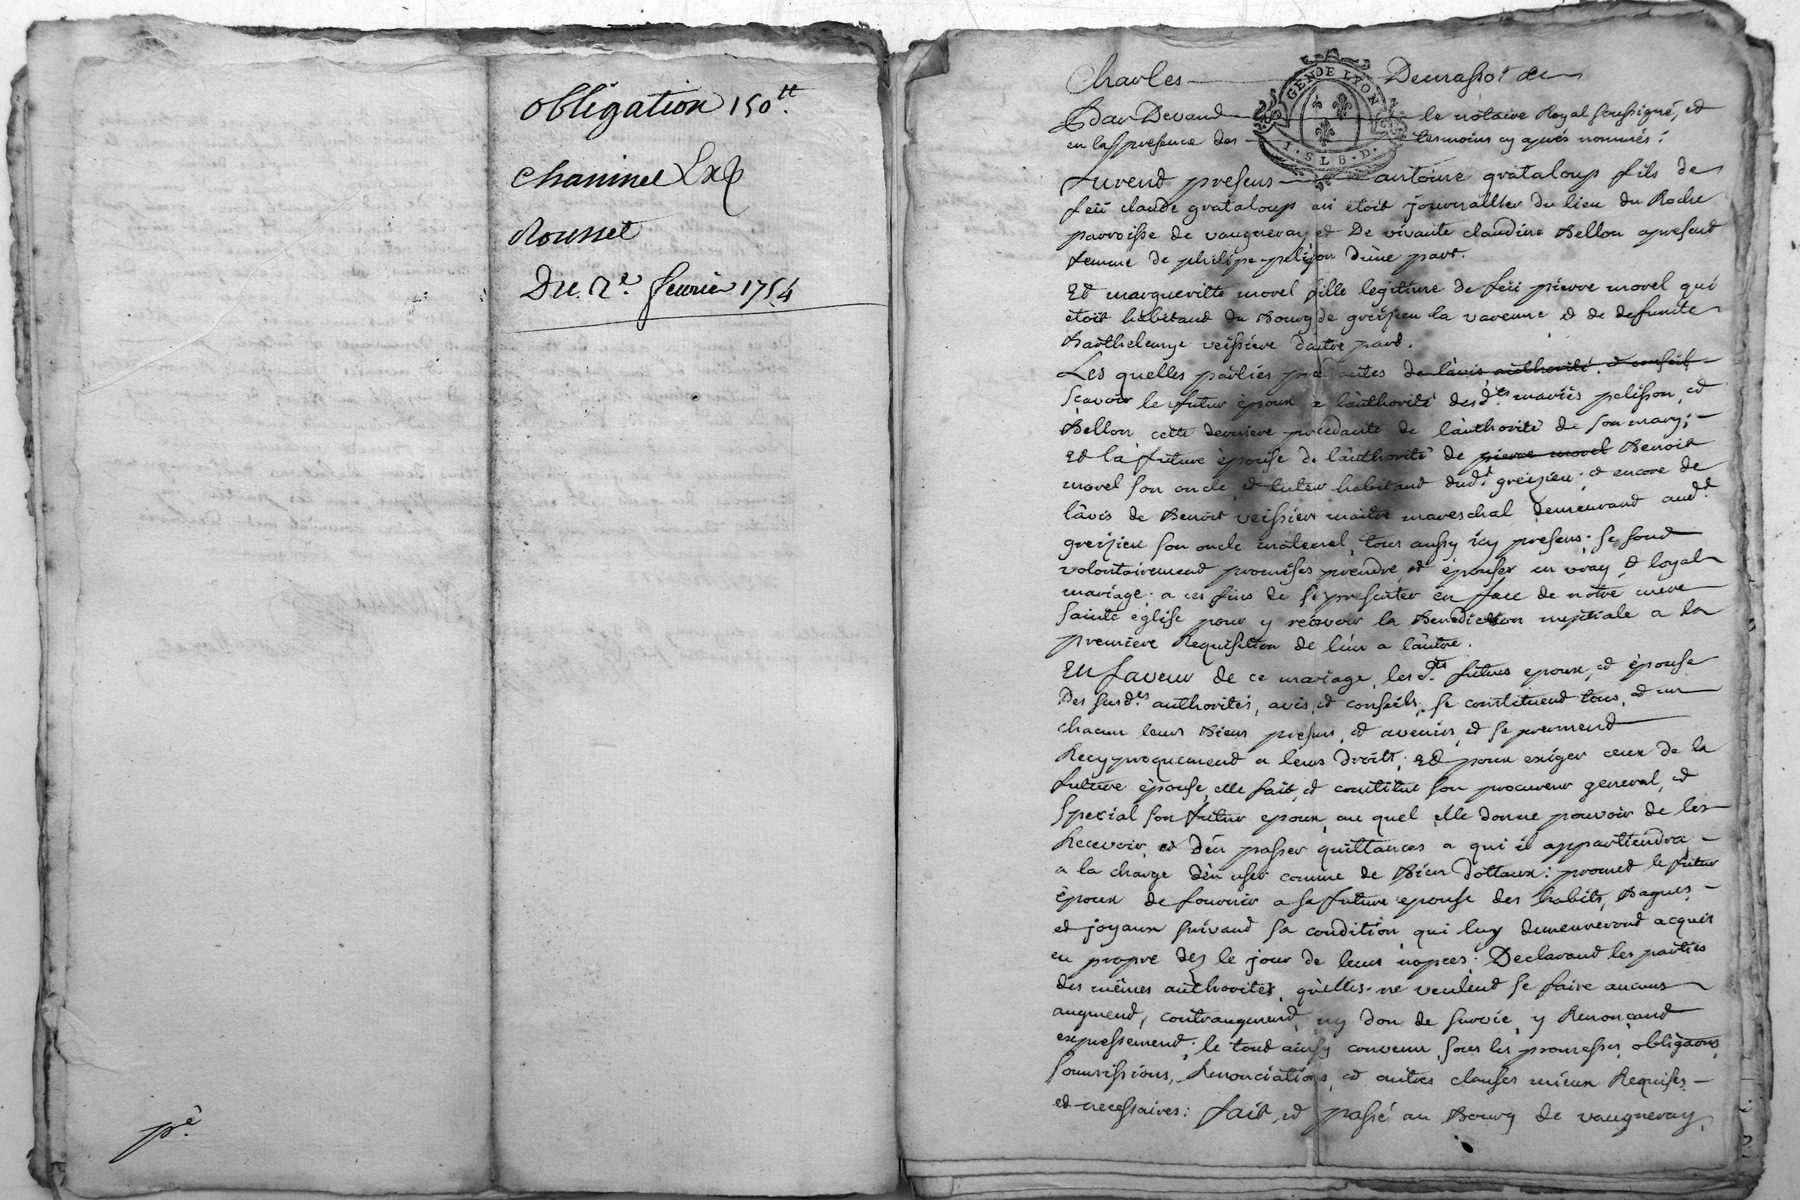 obligation 150tt.
Chaninel Exp
Rousset
Du 2e. fevrier 1754
pe.
Charles Demassot de
GEN DE LYON
1. S L 8. D.
Par Devand le notaire Royal soussigné, et
en la presence des tesmoins cy aprés nommés:
furend presens antoine grataloup fils de
feü claude grataloup qui etoit journallier du lieu du Roche
parroisse de vaugneray et De vivante claudine Bellon apresent
femme de philipe pelisson d'une part.
Et margueritte morel fille legitime de feü pierre morel qui
etoit habitand du Bourg de greizieu la varenne et de defunte
Barthelemye veissiere d'autre part.
Les quelles parties de l'avis authorité, et conseil
sçavoir le futur époux de l'authorité desdts mariés pelisson, et
Bellon, cette derniere procedante de l'authorité de son mary;
Et la future épouse de l'authorité de pierre morel Benoit
morel son oncle, et tuteur habitand dudt greizieu; et encore de
l'avis de Benoit veissiere maitre mareschal demeurand audt
greizieu son oncle maternel, tous aussy icy presens. se sond
volontairement promises prendre, et épouser en vray, et loyal
mariage; a ces fins de se presenter en face de notre mere
sainte église pour y recevoir la Benediction nuptiale a la
premiere Requisition de l'un a l'autre.
En faveur de ce mariage, lesdts futurs epoux, et épouse
Des susdes authorités, avis, et conseils, se constituend tous, et un
chacun leurs Biens presens, et avenirs, et se prennend
Recyproquement a leurs droits; Et pour exiger ceux de la
future épouse, elle fait, et constitue son procureur general, et
special son futur epoux, au quel elle donne pouvoir de les
Recevoir, et d'en passer quittances a qui il appartiendra,
a la charge d'en user comme de Bien dottaux: promet le futur
époux de fournir a sa future epouse des habits, Bagues,
et joyaux suivand sa condition, qui luy demeurerond acquis
en propre dez le jour de leurs nopces; Declarand les parties
des mêmes authorités, qu'elles ne veulend se faire aucuns
augmend, contraugmend, ny don de survie, y Renonçand
expressement; le tout ainsy convenu, sous les promesses, obligaons,
soumissions, Renonciations, et autres clauses mieux Requises
et necessaires: fait, et passé au Bourg de vaugneray,